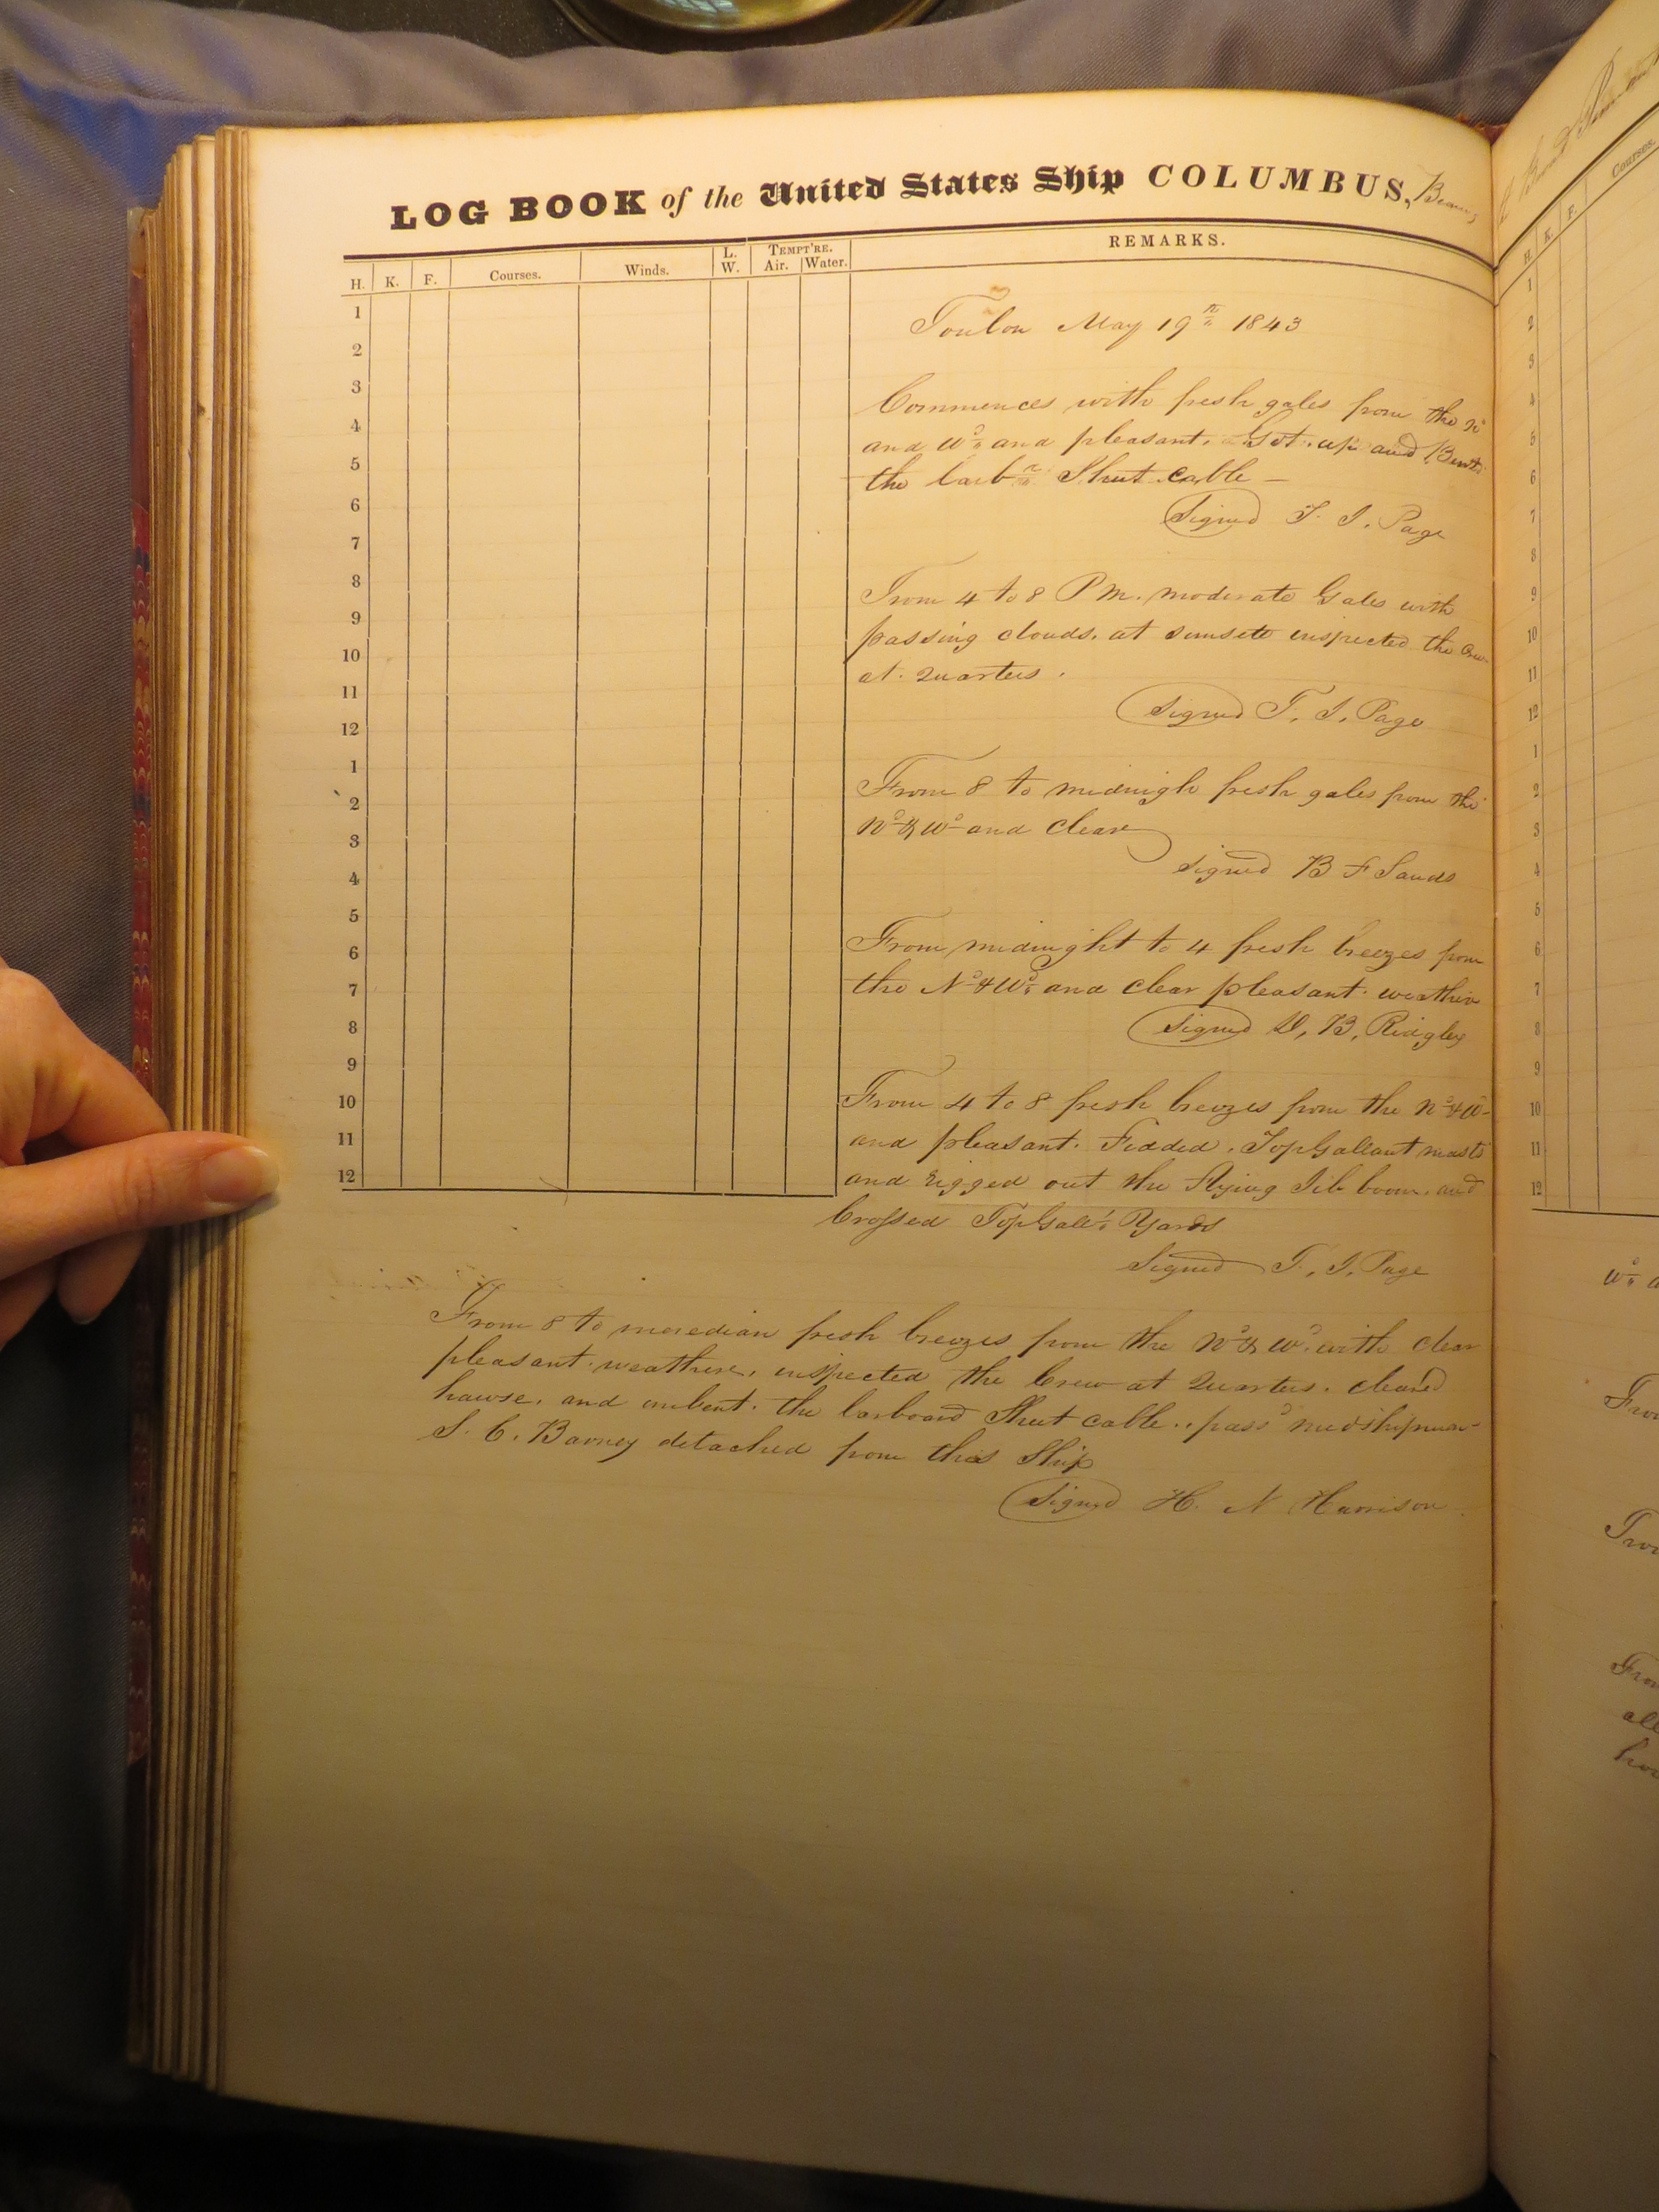 LOG BOOK of the United States Ship COLUMBUS,
H. K. F. Courses. Winds. L. W. TEMPT'RE. Air. Water. REMARKS.
1
2
3
4
5
6
7
8
9
10
11
12
1
2
3
4
5
6
7
8
9
10
11
12
Toulon May 19th 1843
Commences with fresh gales from the No
and Wd and pleasant. Got up and Bent
the larbd Sheet cable —
Signed T. J. Page
From 4 to 8 PM. moderate Gales with
passing clouds. at sunsete inspected the Crew
at Quarters.
Signed T. J. Page
From 8 to midnigh fresh gales from the
No & Wd and clear
Signed B F Sands
From midnight to 4 fresh breezes from
the No & Wd and clear pleasant weather
Signed D. B. Ridgley
From 4 to 8 fresh breezes from the No & Wd
and pleasant. Fidded TopGallant masts
and rigged out the Flying Jib boom. and
Crossed TopGalt Yards
Signed T. J. Page
From 8 to meredian fresh breezes from the No & Wd. with clear
pleasant weather. inspected the Crew at Quarters. cleared
hawse. and unbent the larboard Sheet cable.. passd midshipman
S. C. Barney detached from this Ship
Signed H. N Harrison
Courses.
H. K. F.
1
2
3
4
5
6
7
8
9
10
11
12
1
2
3
4
5
6
7
8
9
10
11
12